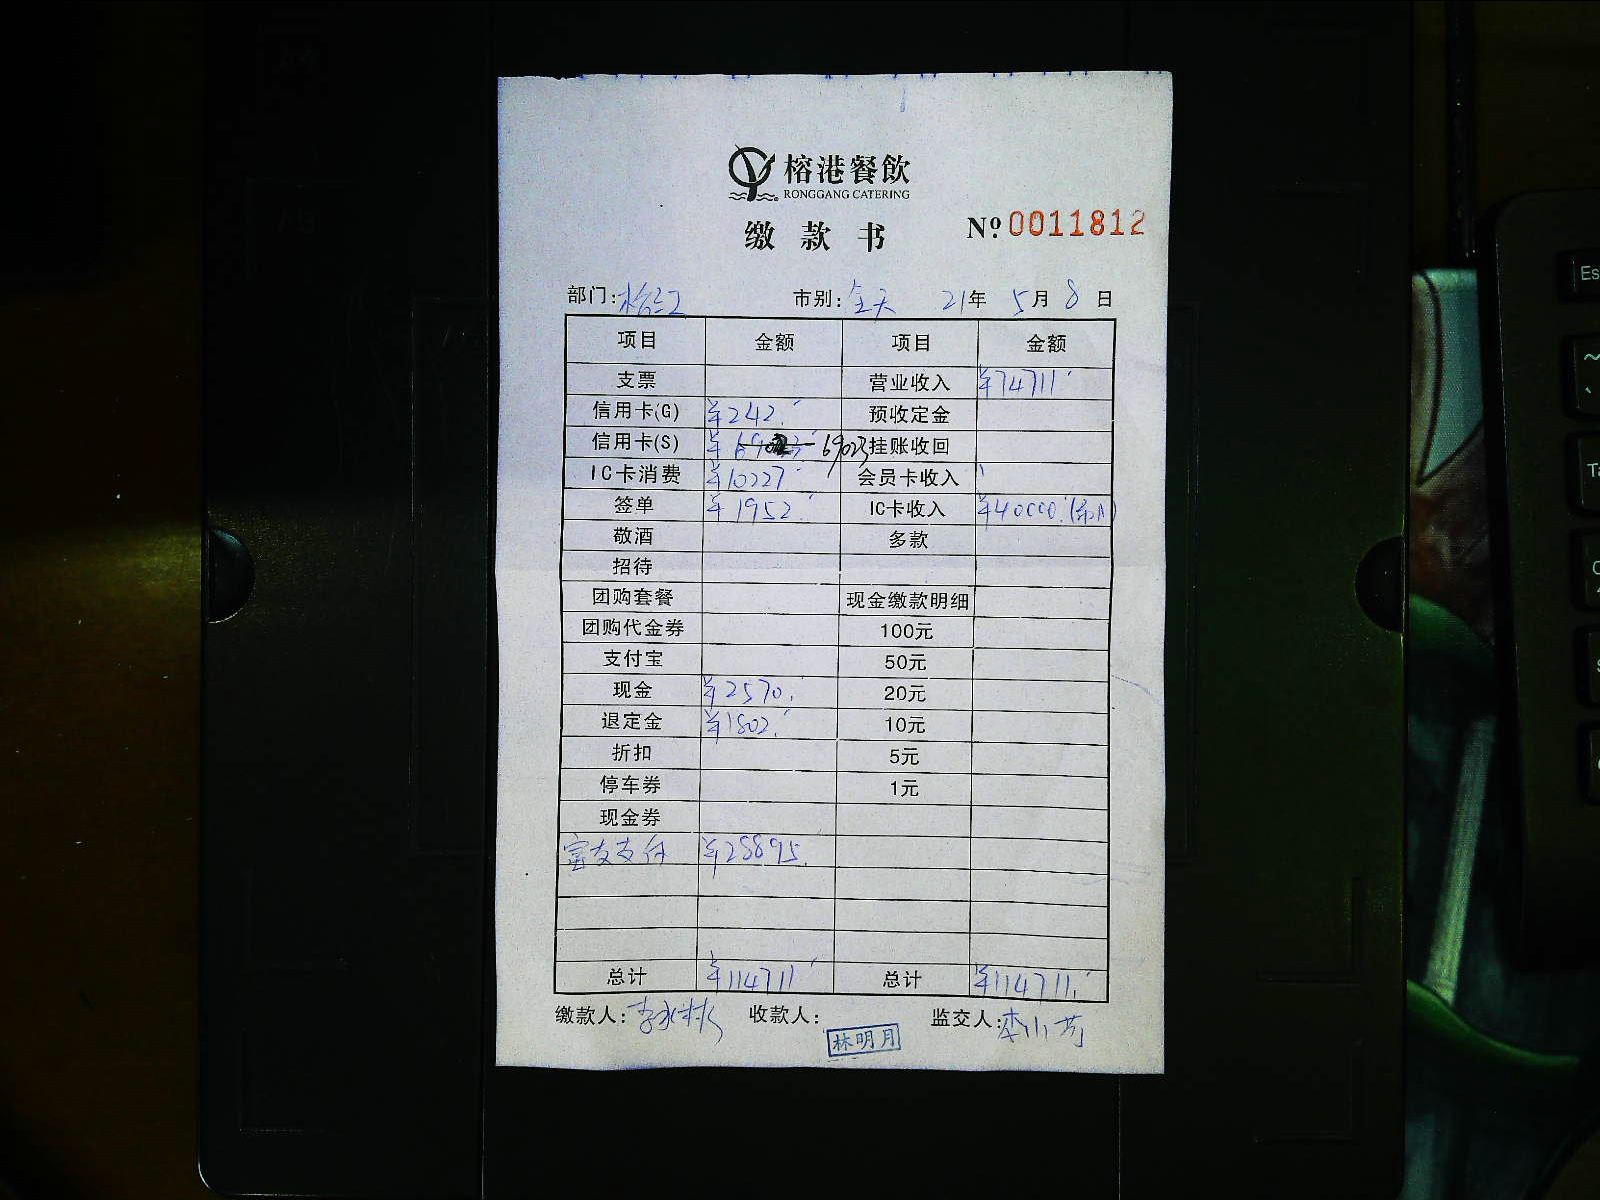 榕港餐飲
RONGGANG CATERING
缴款书
Nº 0011812
部门:榕江 市别:全天 21年 5月 8日
项目 金额 项目 金额
支票 营业收入 ¥74711
信用卡(G) ¥242. 预收定金
信用卡(S) 69023 挂账收回
IC卡消费 ¥10227 会员卡收入
签单 ¥1952. IC卡收入 ¥40000.
敬酒 多款
招待
团购套餐 现金缴款明细
团购代金券 100元
支付宝 50元
现金 ¥2570. 20元
退定金 ¥1802. 10元
折扣 5元
停车券 1元
现金券
富友支付 ¥28895.
总计 ¥114711 总计 ¥114711.
缴款人: 收款人:林明月 监交人:李小芳
Es